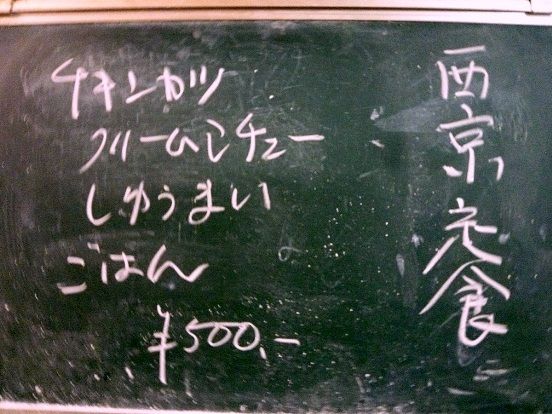 西京定食
チキンカツ
クリームシチュー
しゅうまい
ごはん
¥500.-